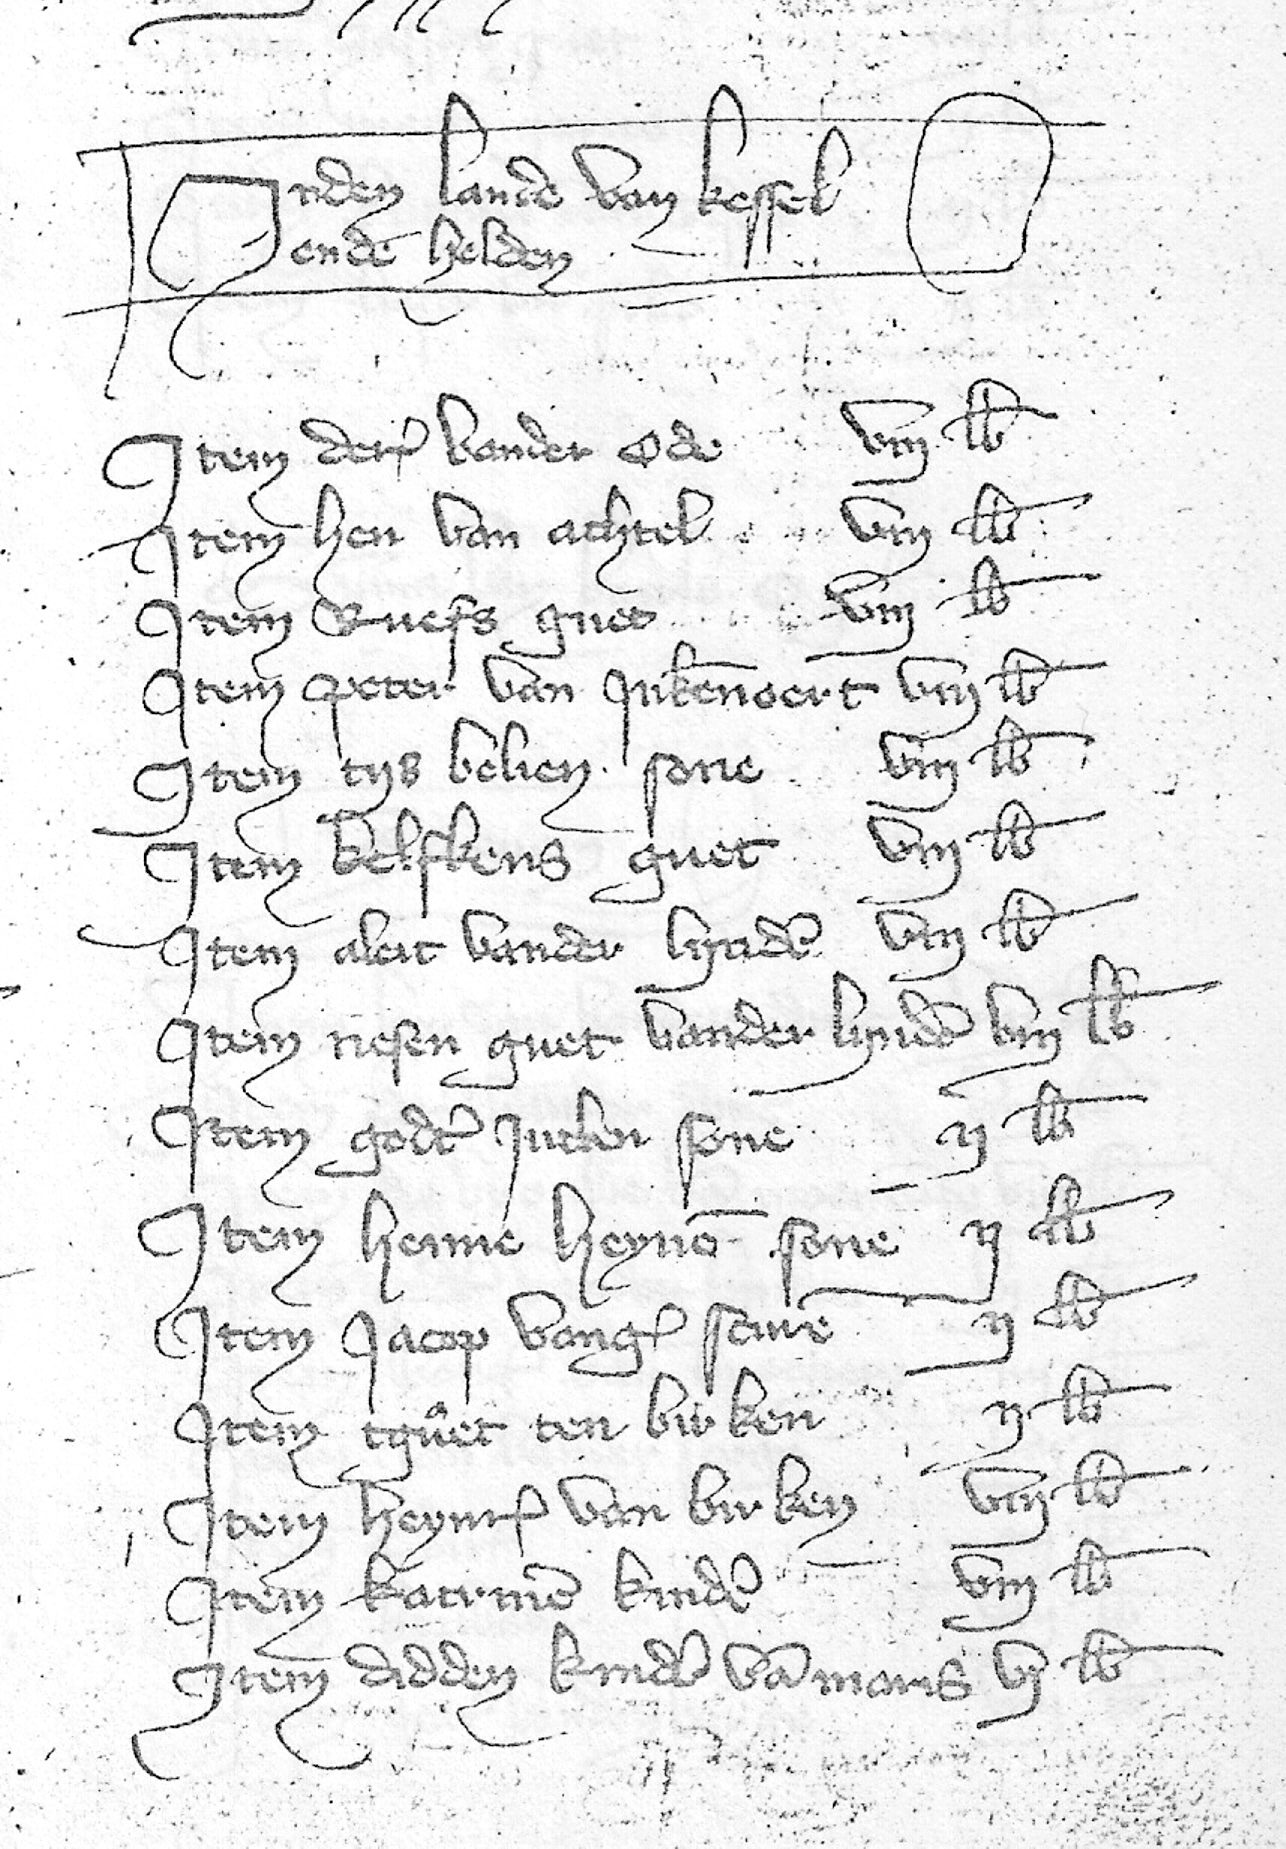 Inden lande van kessel
ende helden
Item der vander ode viij lb
Item hen van achtel viij lb
Item Ruefs guet viij lb
Item peter van Inkenoert viij lb
Item tijs belien sone viij lb
Item kelfkens guet viij lb
Item aleit vander lynde viij lb
Item nesen guet vander lynde viij lb
Item godt sone ij lb
Item henne heyno sone ij lb
Item Jacop vang ij lb
Item tguet ten birken ij lb
Item heynr van birken viij lb
Item katrine kinde viij lb
Item didden kinder va maris vj lb